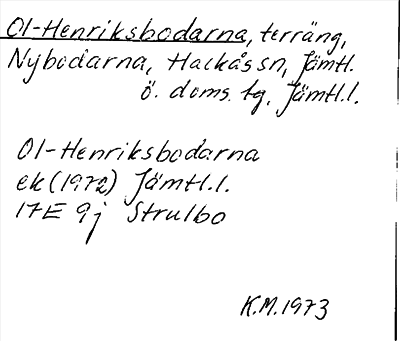 Ol-Henriksbodarna, terräng,
Nybodarna, Hackås sn, Jämtl.
ö. doms. tg, Jämtl.l.
Ol-Henriksbodarna
ek (1972) Jämtl.l.
17E 9j Strulbo
K.M.1973